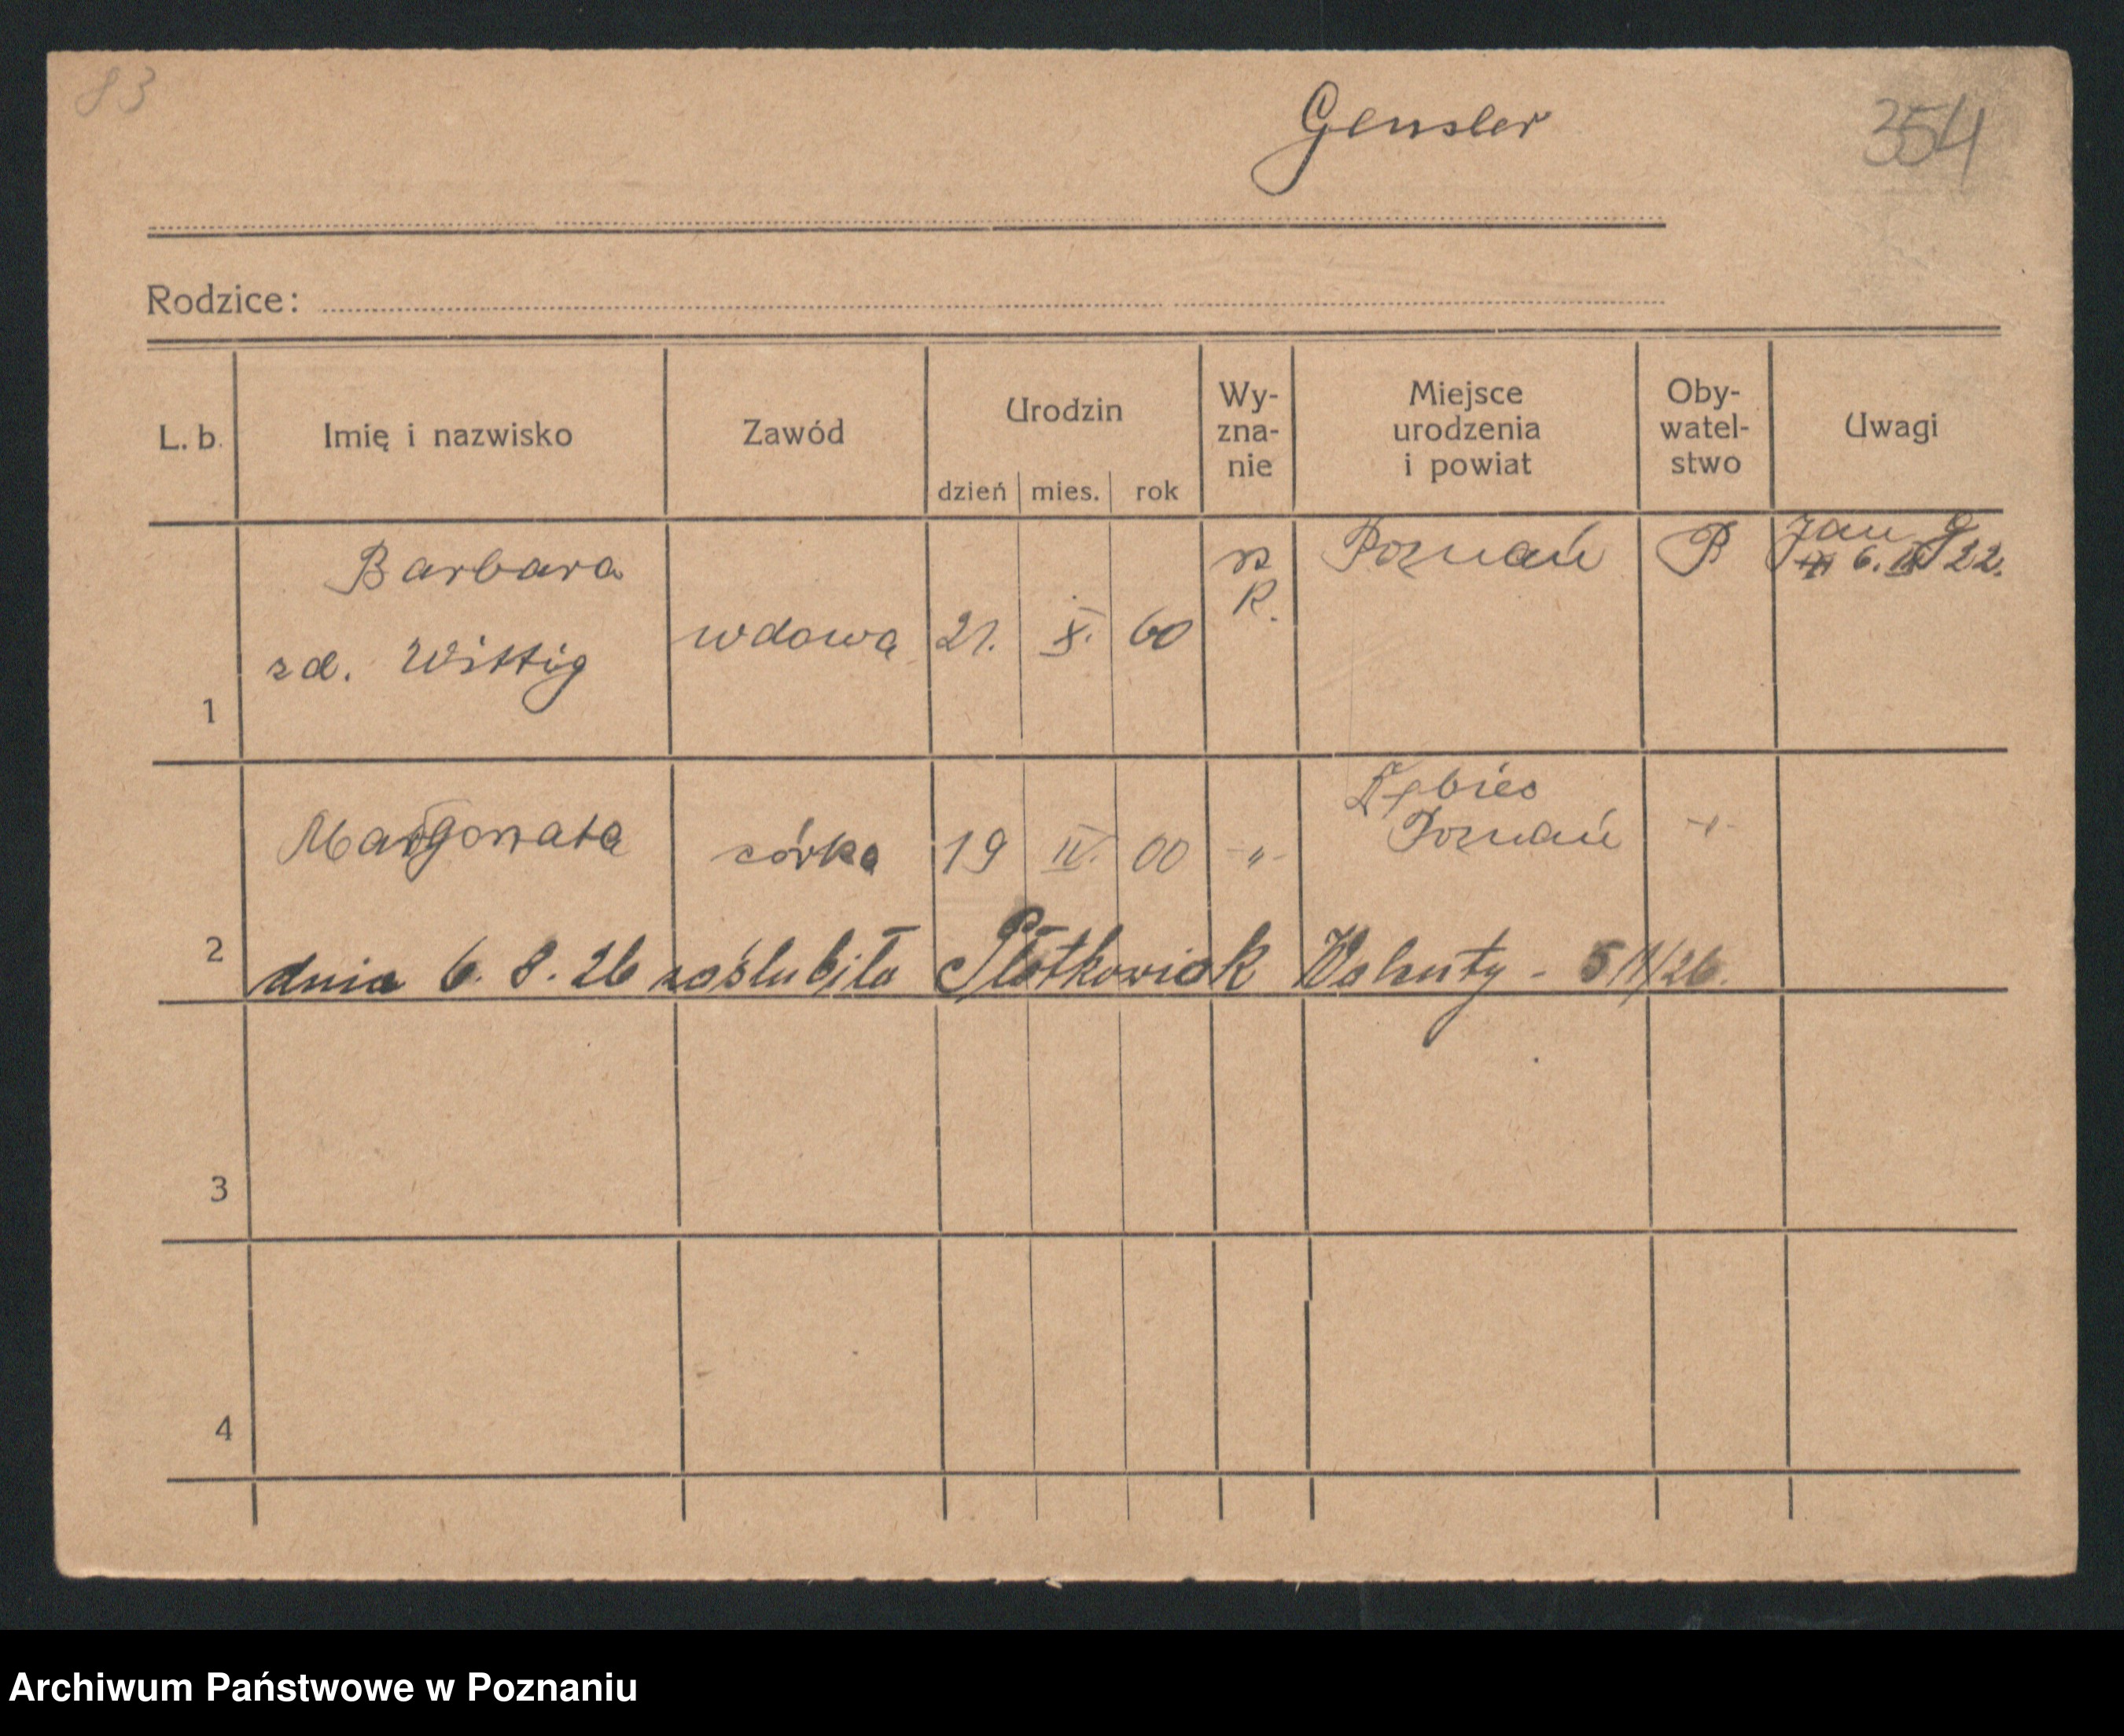 83
Gensler
354
Rodzice:
L. b.
Imię i nazwisko
Zawód
Urodzin
dzień mies. rok
Wy-
zna-
nie
Miejsce
urodzenia
i powiat
Oby-
watel-
stwo
Uwagi
1
Barbara
zd. Wittig
wdowa
21. X. 60
R
K.
Poznań
P
Jan G
6. 22.
2
Małgorzata
córka
19 IV. 00
-"-
Dębiec
Poznań
dnia 6. 8. 26 zaślubiła Płotkowiak Walenty - /26.
3
4
Archiwum Państwowe w Poznaniu